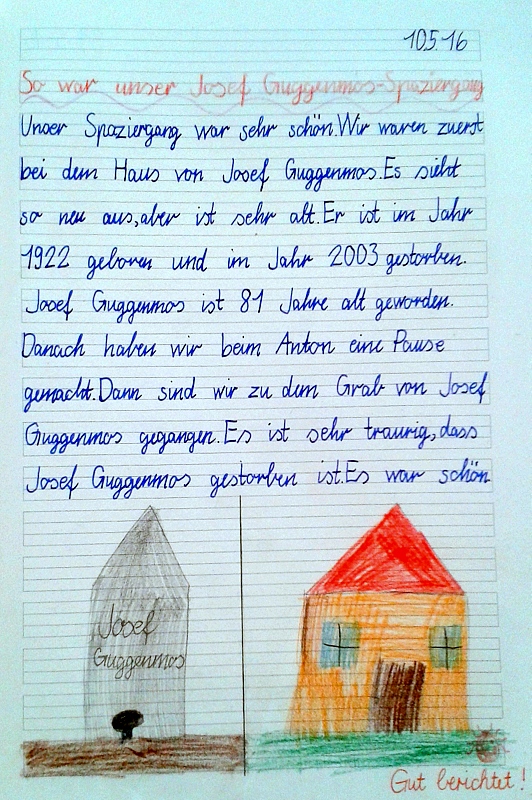 10.5.16
So war unser Josef Guggenmos-Spaziergang
Unser Spaziergang war sehr schön.Wir waren zuerst
bei dem Haus von Josef Guggenmos.Es sieht
so neu aus,aber ist sehr alt.Er ist im Jahr
1922 geboren und im Jahr 2003 gestorben.
Josef Guggenmos ist 81 Jahre alt geworden.
Danach haben wir beim Anton eine Pause
gemacht.Dann sind wir zu dem Grab von Josef
Guggenmos gegangen.Es ist sehr traurig,dass
Josef Guggenmos gestorben ist.Es war schön
Josef
Guggenmos
Gut berichtet!